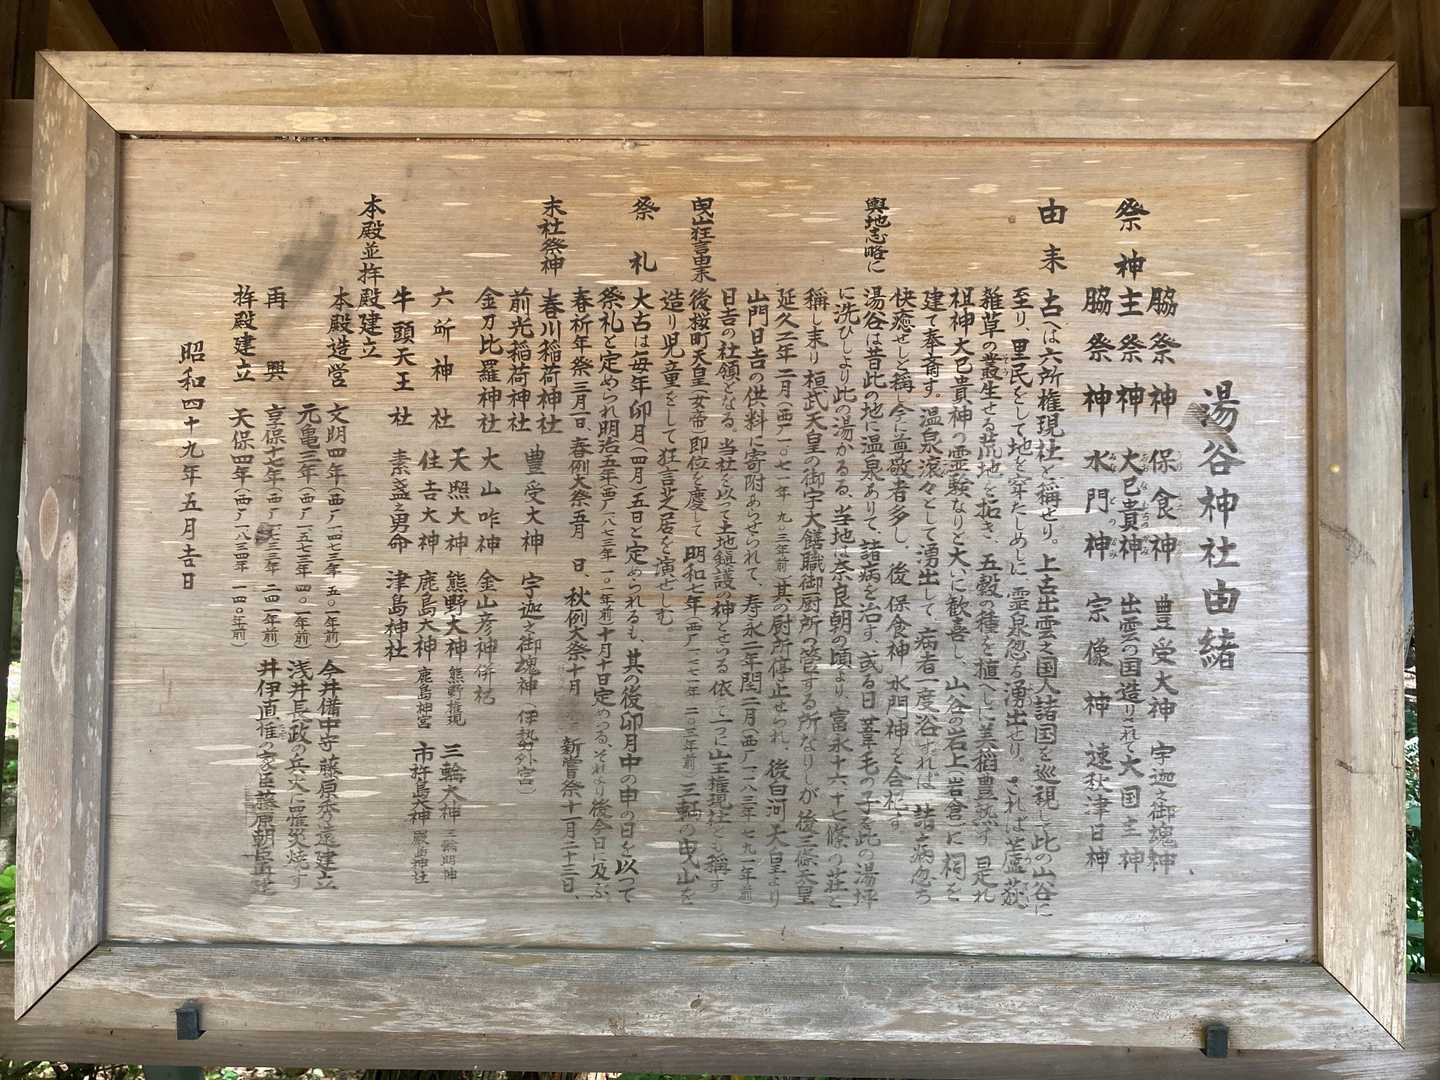 湯谷神社由緒
祭神
脇祭神 保食神 豊受大神 宇迦之御魂神
主祭神 大己貴神 出雲の国造りされて大国主神
脇祭神 水門神 宗像神 速秋津日神
由来
古へは六所権現社と稱せり。上古出雲之国人諸国を巡視し此の山谷に
至り、里民をして地を穿たしめしに霊泉忽ち湧出せり。されば蘆荻
雑草の叢生せる荒地を拓き、五穀の種を植へしに美稻豊熟す。是れ
祖神大己貴神の霊験なりと大いに歓喜し、山谷の岩上(岩倉)に祠を
建て奉斎す。温泉滾々として湧出して病者一度浴すれば諸病忽ち
快癒せしと稱し今に尊敬者多し。後保食神水門神を合祀す
輿地志略に
湯谷は昔此の地に温泉ありて、諸病を治す、或る日葦毛の子馬此の湯坪
に洗ひしより此の湯かるる、当地は奈良朝の頃より富永十六十七條の荘と
稱し来り桓武天皇の御宇大膳職御厨所の管する所なりしが後三條天皇
延久三年二月(西ノ一〇七一年 九〇三年前)其の厨所停止せられ、後白河天皇より
山門日吉の供料に寄附あらせられて、寿永二年閏二月(西ノ一一八三年 七九一年前)
日吉の社領となる、当社を以って土地鎮護の神とせらる依って一つに山王権現社とも稱す
曳山狂言由来
後桜町天皇(女帝)即位を慶して 明和七年(西ノ一七七一年 二〇三年前)三輌の曳山を
造り児童をして狂言芝居を演せしむ。
祭礼
大古は毎年卯月(四月)五日と定められるも、其の後卯月中の申の日を以って
祭礼と定められ明治五年(西ノ一八七三年 一〇一年前)十月十日定めらる、それより後今日に及ぶ
春祈年祭三月一日、春例大祭五月 日、秋例大祭十月 新嘗祭十一月二十三日、
末社祭神
春川稲荷神社 豊受大神 宇迦之御魂神(伊勢外宮)
前光稲荷神社
金刀比羅神社 大山咋神 金山彦神併祀
六所神社 天照大神 熊野大神 熊野権現 三輪大神 三輪明神
住吉大神 鹿島大神 鹿島神宮 市杵島大神 厳島神社
牛頭天王社 素盞之男命 津島神社
本殿並拝殿建立
本殿造営 文明四年(西ノ一四七三年 五〇一年前) 今井備中守藤原秀遠建立
元亀三年(西ノ一五七三年 四〇一年前) 浅井長政の兵火に罹災焼す
再興 享保十七年(西ノ一七三三年 二四一年前) 井伊直惟の家臣藤原朝臣再建
拝殿建立 天保四年(西ノ一八三四年 一四〇年前)
昭和四十九年五月吉日